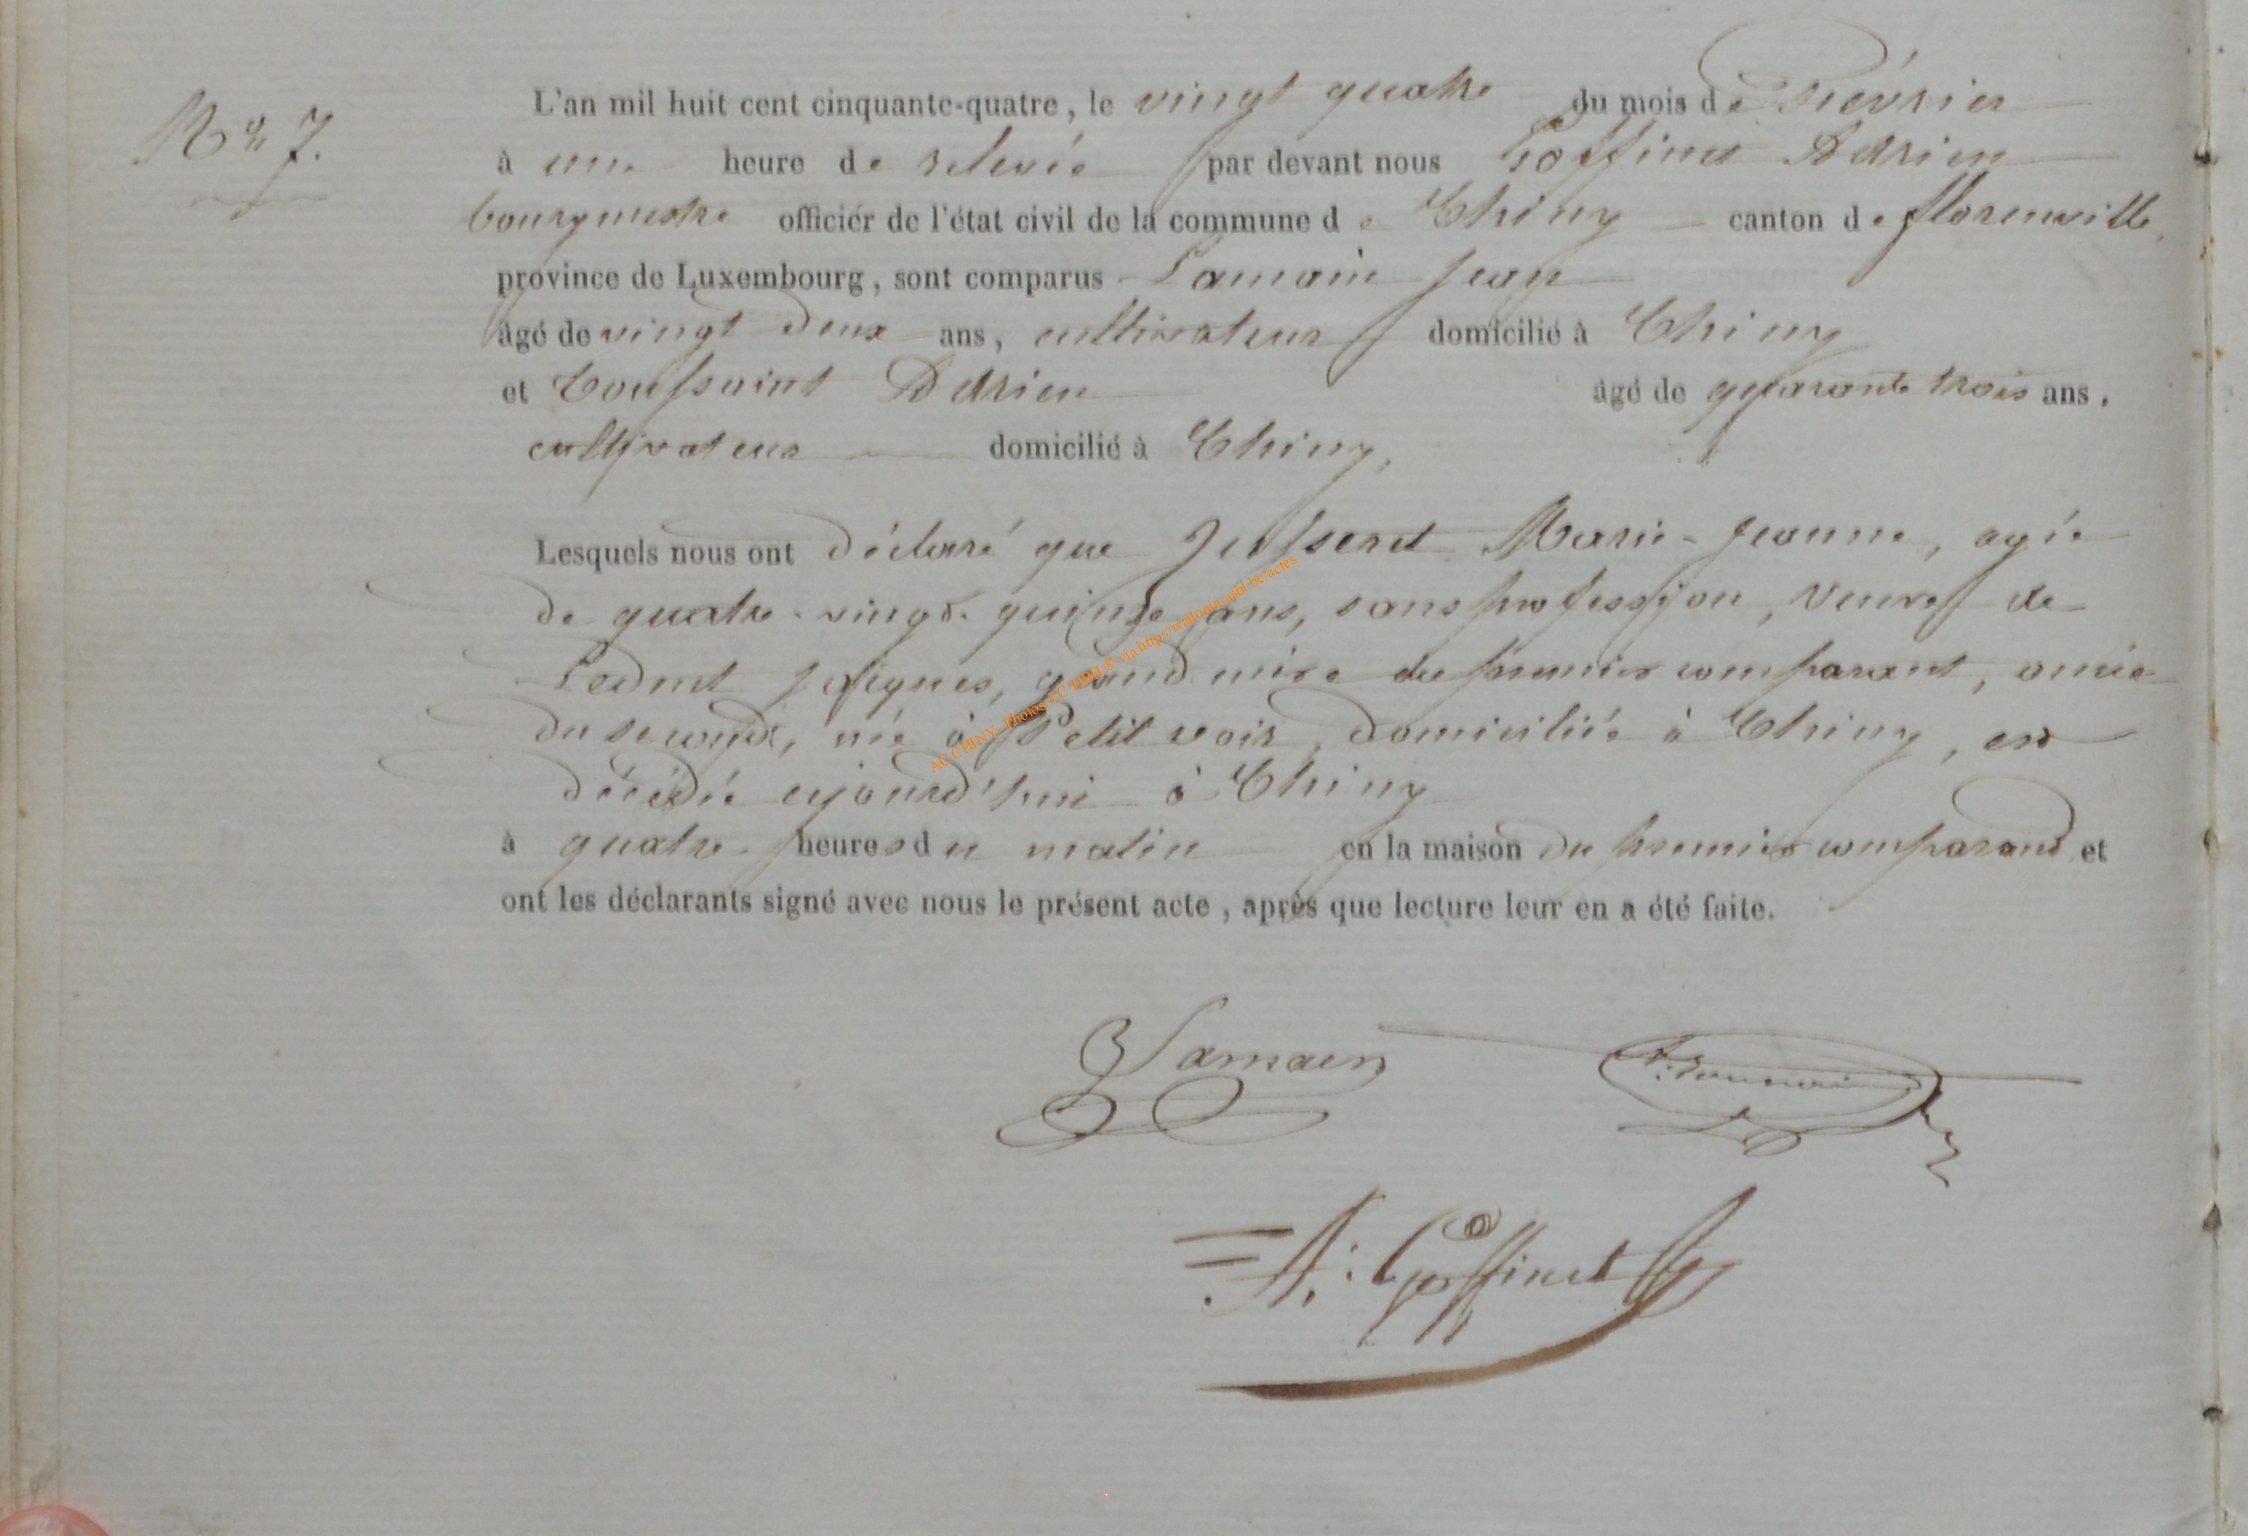 N° 7.
L'an mil huit cent cinquante-quatre, le vingt quatre du mois de Février
à une heure de relevée par devant nous Goffinet Adrien
bourgmestre officiér de l'état civil de la commune de Chiny canton de florenville,
province de Luxembourg, sont comparus Lamain Jean
âgé de vingt deux ans, cultivateur domicilié à Chiny
et Toussaint Adrien âgé de quarante trois ans,
cultivateur domicilié à Chiny,
Lesquels nous ont déclaré que Jusseret Marie-Jeanne, agée
de quatre-vingt-quinze ans, sans profession, veuve de
Jacques, grand mère du premier comparant, amie
du second, née à Petit voir, domiciliée à Chiny, est
décédée aujourd'hui à Chiny
à quatre heures du matin en la maison du premier comparant et
ont les déclarants signé avec nous le présent acte, après que lecture leur en a été faite.
AC CHINY - Photos J.C via http://wallonia-asbl.be/actes
J Lamain
A: Toussaint
A: Goffinet